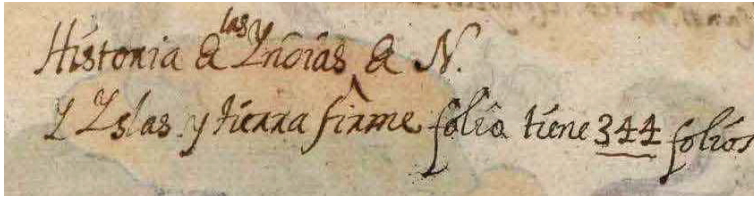 Historia de las Yndias de N.
Y Yslas y tierra firme folio tiene 344 folios